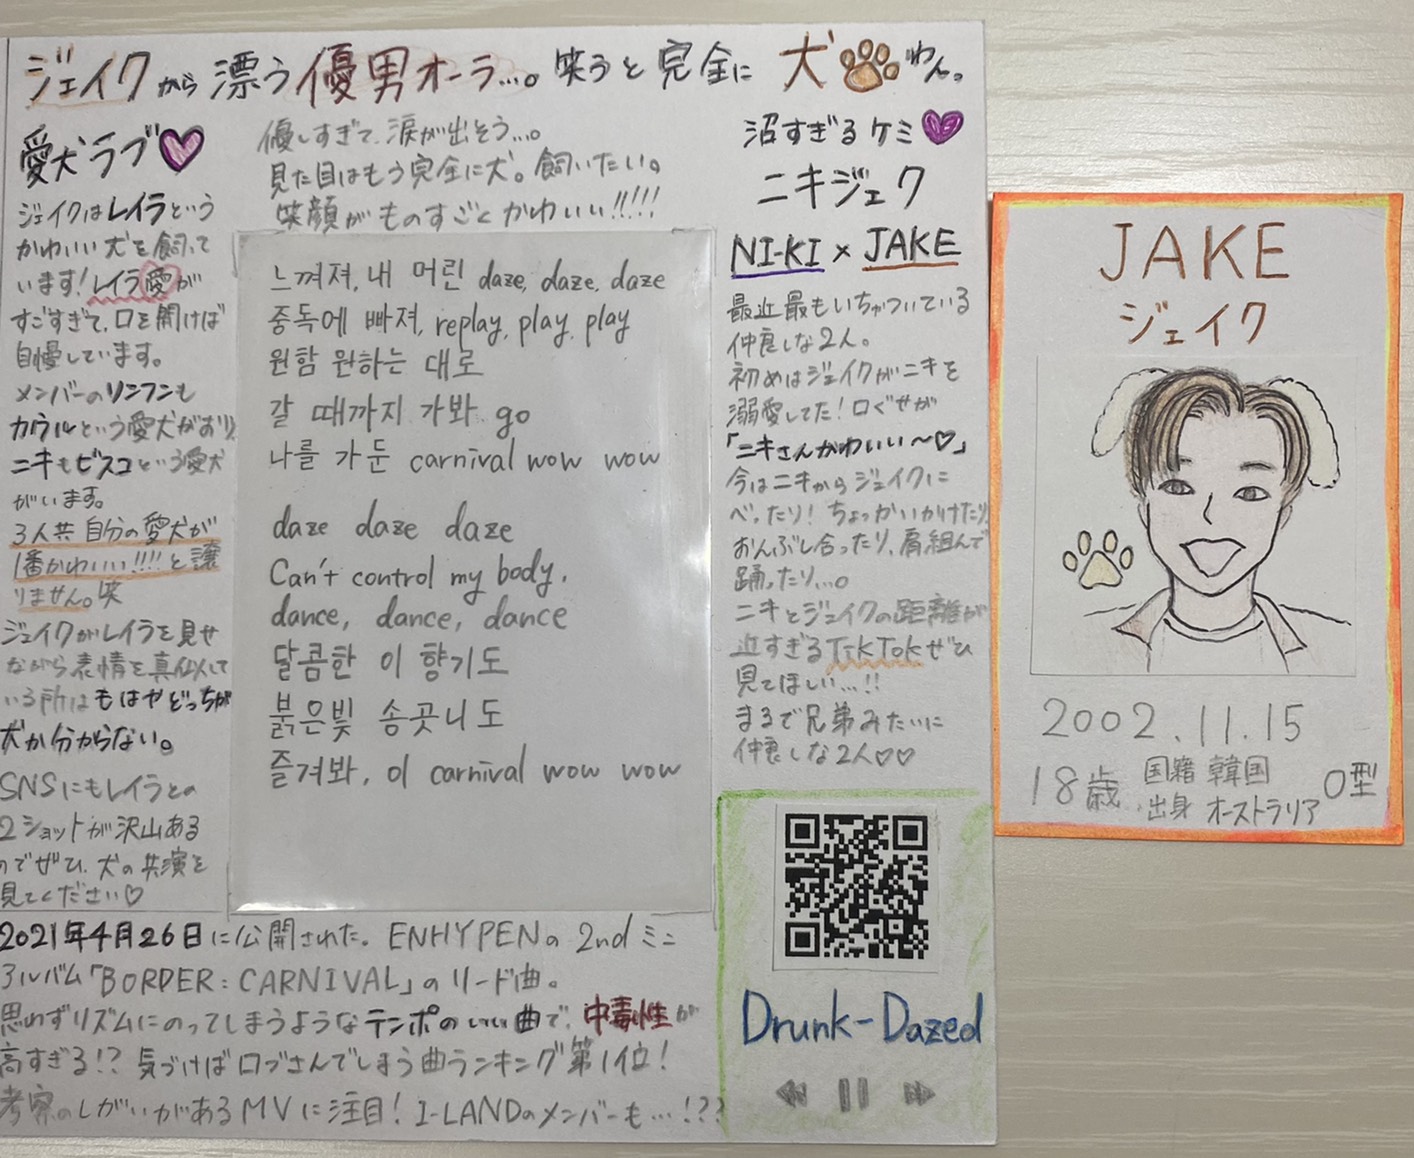 ジェイクから漂う優男オーラ…。笑うと完全に犬わん。
愛犬ラブ
ジェイクはレイラという
かわいい犬を飼って
います!レイラ愛が
すごすぎて、口を開けば
自慢しています。
メンバーのソンフンも
カウルという愛犬がおり
ニキもビスコという愛犬
がいます。
3人共自分の愛犬が
1番かわいい!!!!と譲
りません。笑
ジェイクがレイラを見せ
ながら表情を真似して
いる所はもはやどっちが
犬か分からない。
SNSにもレイラとの
2ショットが沢山ある
のでぜひ、犬の共演を
見てください♡
優しすぎて、涙が出そう…。
見た目はもう完全に犬。飼いたい。
笑顔がものすごくかわいい!!!!!
느껴져, 내 머린 daze, daze, daze
중독에 빠져, replay, play, play
원함 원하는 대로
갈 때까지 가봐 go
나를 가둔 carnival wow wow
daze daze daze
Can't control my body,
dance, dance, dance
달콤한 이 향기도
붉은빛 송곳니도
즐겨봐, 이 carnival wow wow
沼すぎるケミ
ニキジェク
NI-KI × JAKE
最近最もいちゃついている
仲良しな2人。
初めはジェイクがニキを
溺愛してた!口ぐせが
「ニキさんかわいい〜♡」
今はニキからジェイクに
べったり!ちょっかいかけたり
おんぶし合ったり、肩組んで
踊ったり…。
ニキとジェイクの距離が
近すぎるTikTokぜひ
見てほしい…!!
まるで兄弟みたいに
仲良しな2人♡♡
JAKE
ジェイク
2002.11.15
18歳 国籍 韓国 O型
出身 オーストラリア
Drunk-Dazed
2021年4月26日に公開された。ENHYPENの2ndミニ
アルバム「BORDER:CARNIVAL」のリード曲。
思わずリズムにのってしまうようなテンポのいい曲で、中毒性が
高すぎる!?気づけば口ずさんでしまう曲ランキング第1位!
考察のしがいがあるMVに注目!I-LANDのメンバーも…!??